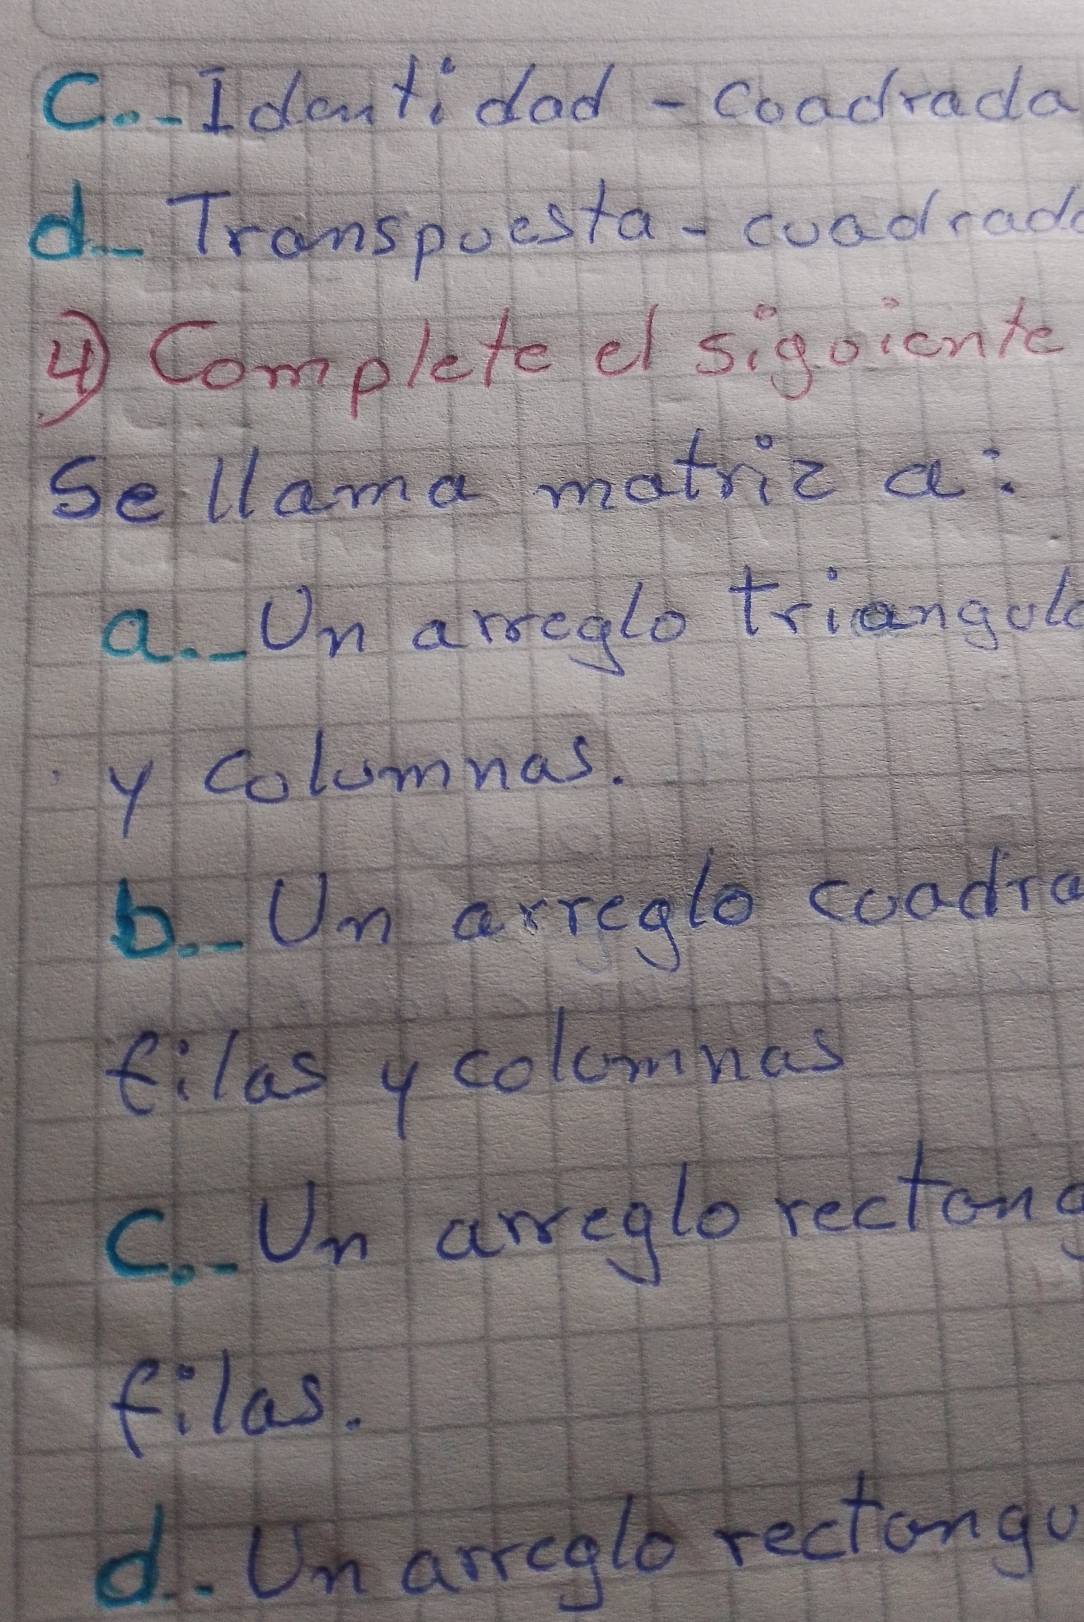 C.-Identidad - Coadrada
d.- Transpuesta - cuadrad
4) Complete el siguiente
Se llama matriz a:
a.- Un arreglo triangul
y columnas.
b.- Un arreglo cuadra
filas y columnas
C.- Un arreglo rectang
filas.
d.- Un arreglo rectangu